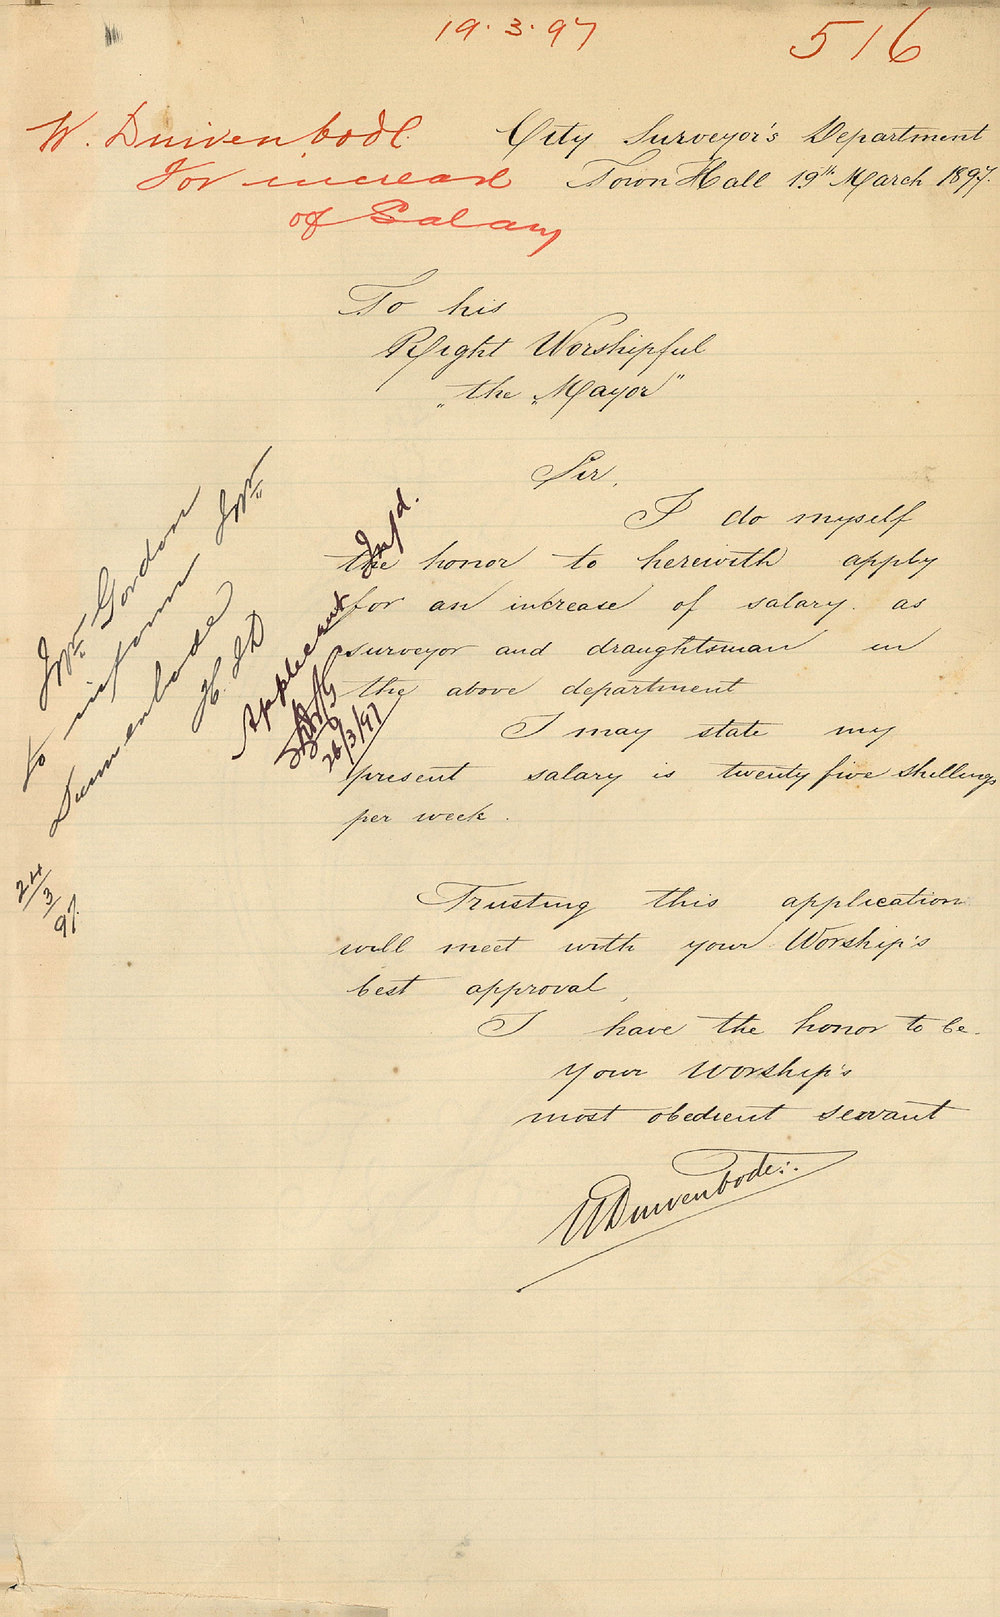 19.3.97
516
W. Duivenbode
For increase
of Salary
City Surveyor's Department
Town Hall 19th March 1897.
To his
Right Worshipful
"the "Mayor"
Sir,
I do myself
the honor to herewith apply
for an increase of salary. as
surveyor and draughtsman in
the above department
I may state my
present salary is twenty five shillings
per week.
Trusting this application
will meet with your Worship's
best approval,
I have the honor to be.
your worship's
most obedient servant
W Duivenbode
Mr Gordon
to inform Mr
Duivenbode
24/3/97.
Applicant Infd.
26/3/97